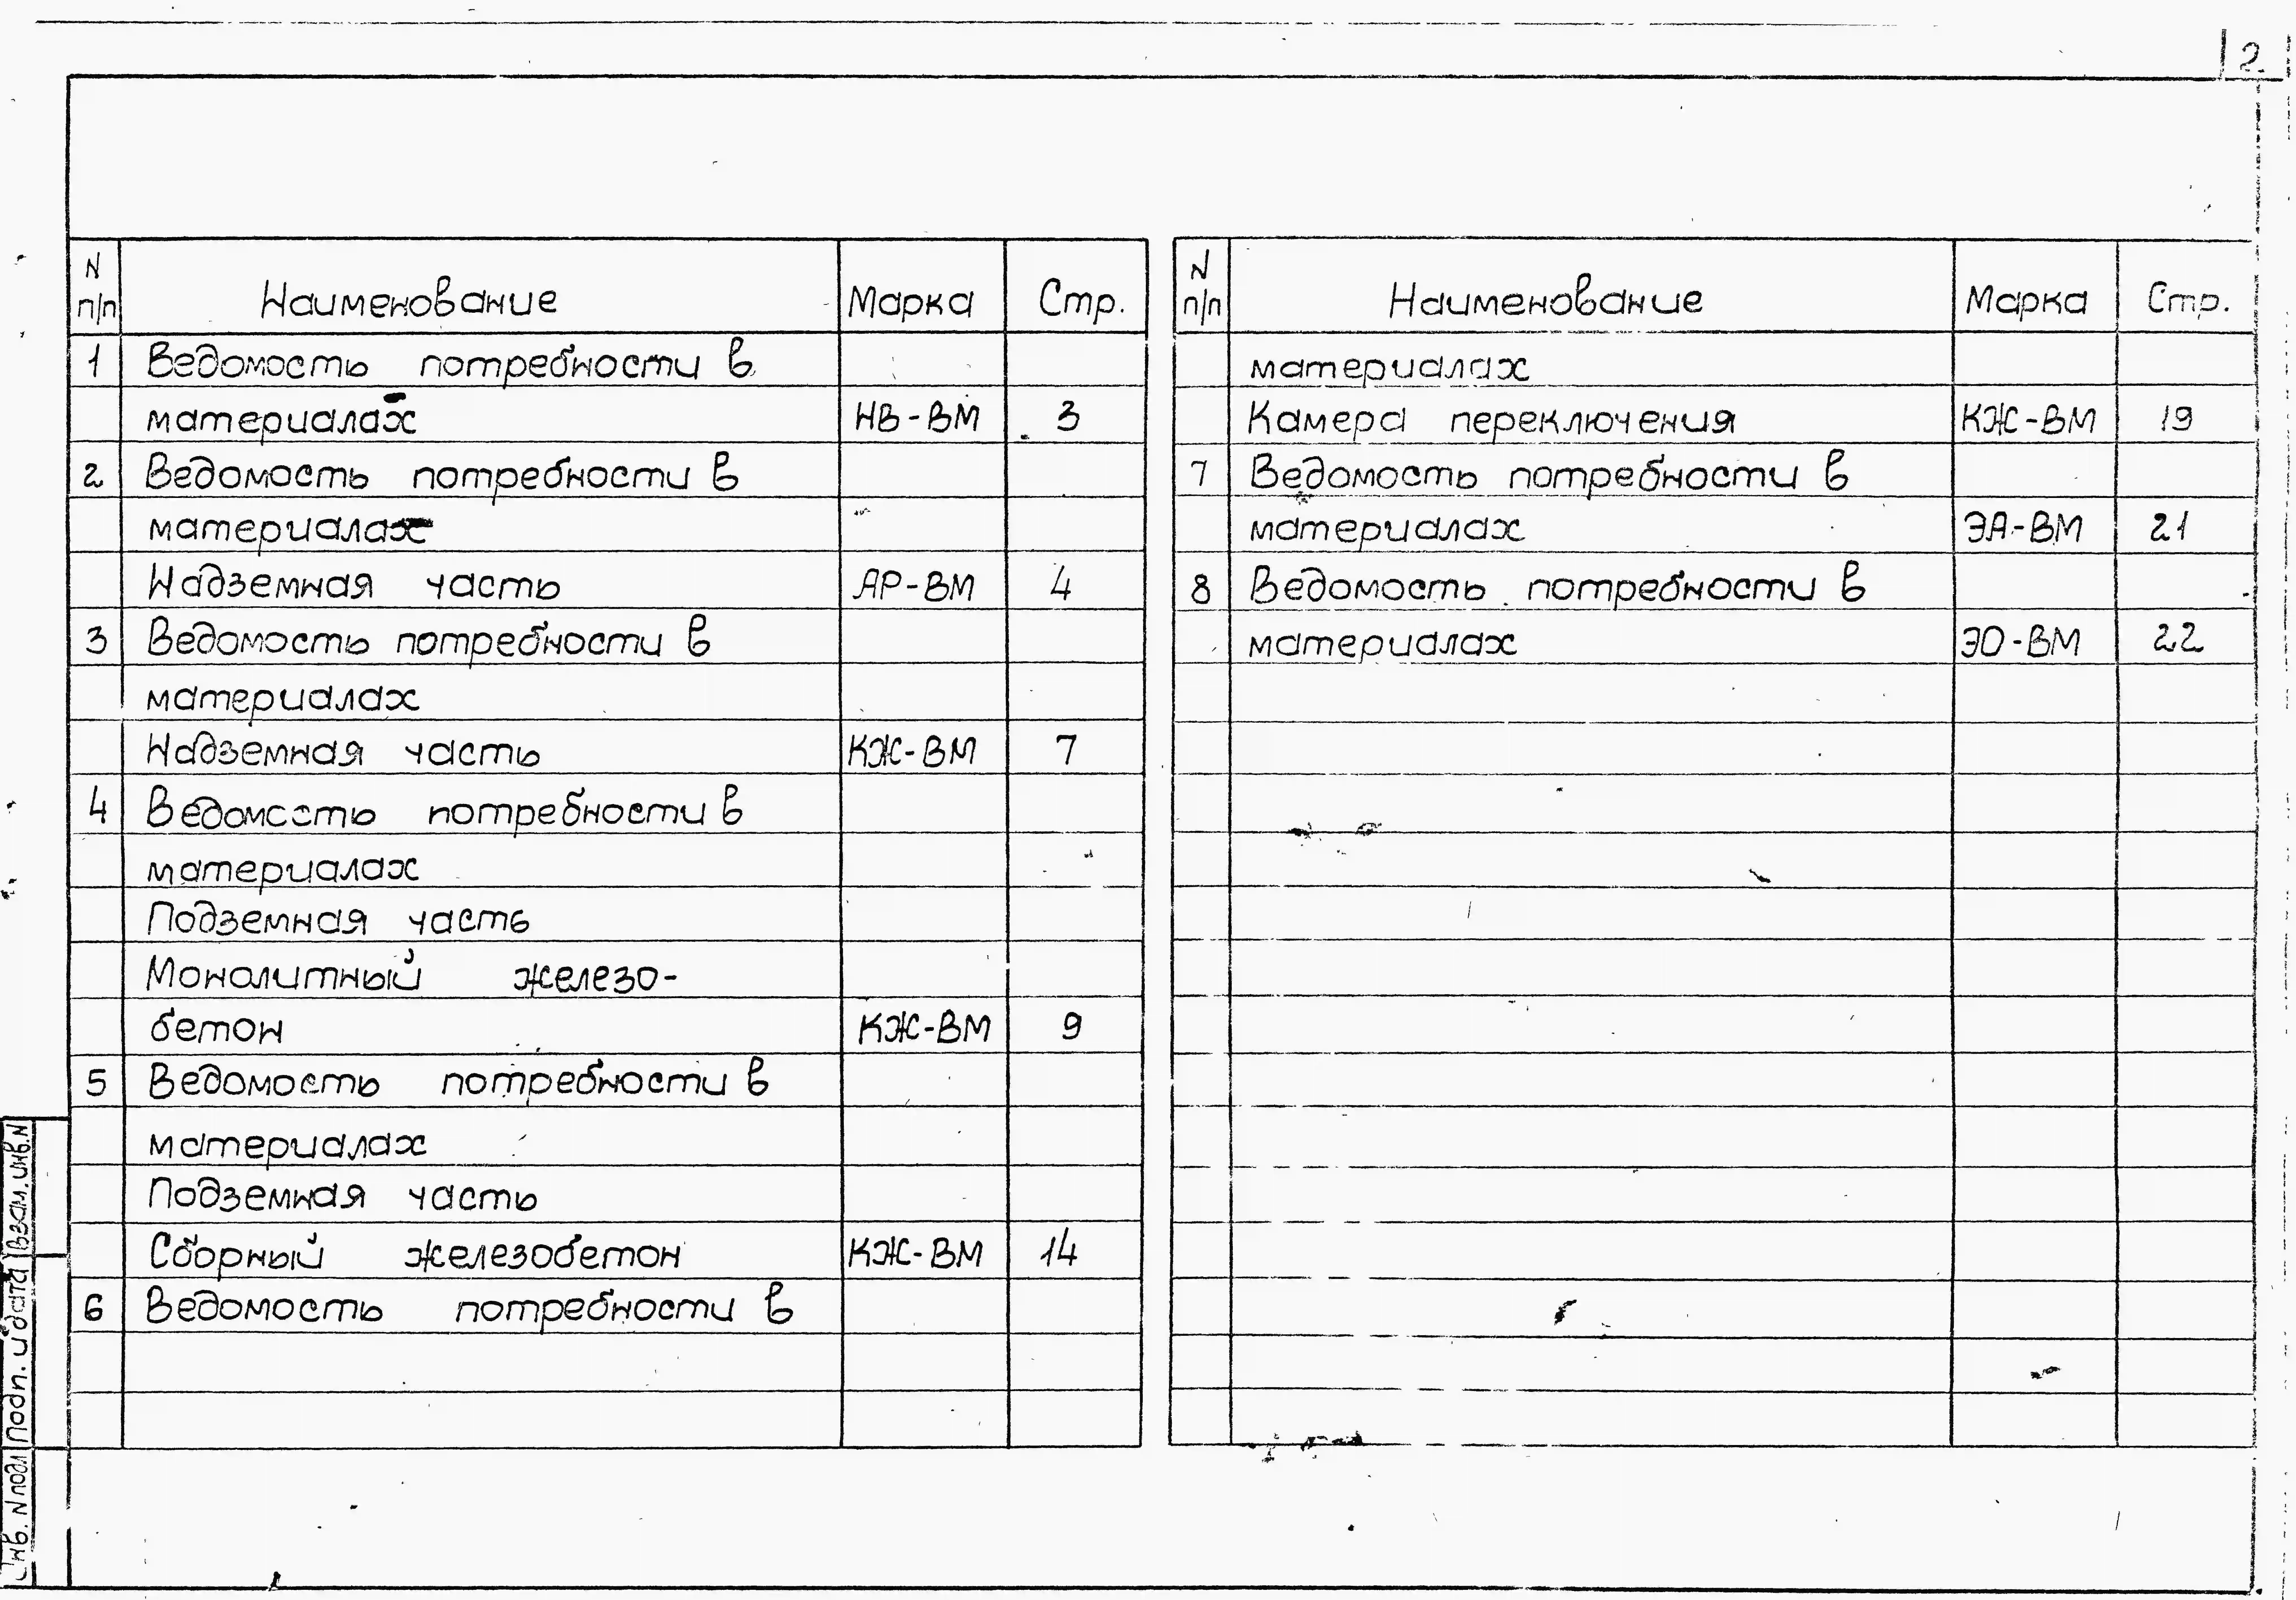 2
N п/п Наименование Марка Стр.
1 Ведомость потребности в
материалах НВ-ВМ 3
2 Ведомость потребности в
материалах
Надземная часть АР-ВМ 4
3 Ведомость потребности в
материалах
Надземная часть КЖ-ВМ 7
4 Ведомость потребности в
материалах
Подземная часть
Монолитный железо-
бетон КЖ-ВМ 9
5 Ведомость потребности в
материалах
Подземная часть
Сборный железобетон КЖ-ВМ 14
6 Ведомость потребности в
N п/п Наименование Марка Стр.
материалах
Камера переключения КЖ-ВМ 19
7 Ведомость потребности в
материалах ЭА-ВМ 21
8 Ведомость потребности в
материалах ЭО-ВМ 22
Взам. инв. N
Подп. и дата
Инв. N подл